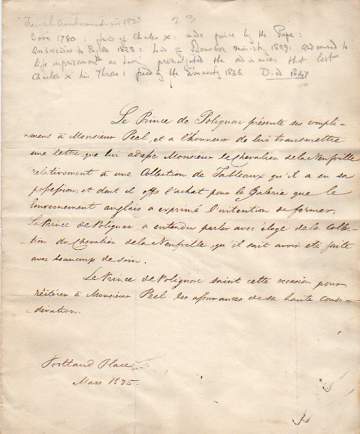 French Ambassador in 1823 23
Born 1780: Charles X: made prince by the Pope:
Ambassador to England 1823: Minister, 1829: condemned to
life imprisonment the ordinances that lost
Charles X his Throne: freed by the amnesty 1836 Died 1847
Le Prince de Polignac présente ses compli-
mens à Monsieur Peel, et a l'honneur de lui transmettre
une lettre que lui adresse Monsieur le Chevalier de la Neufville
relativement à une Collection de Tableaux qu'il a en sa
possession et dont il offre l'achat pour la Galerie que le
Gouvernement anglais a exprimé l'intention de former.
Le Prince de Polignac a entendu parler avec éloge de la Collec-
tion du Chevalier de la Neufville, qu'il sait avoir été faite
avec beaucoup de soin.
Le Prince de Polignac saisit cette occasion pour
réitérer à Monsieur Peel les assurances de sa haute consi-
dération.
Portland Place
Mars 1825.